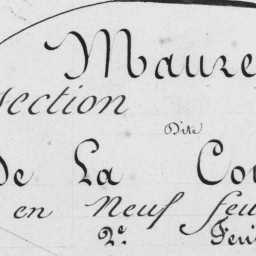 Maure
section
Dite
De La Cou
en Neuf feu
2e. Feui